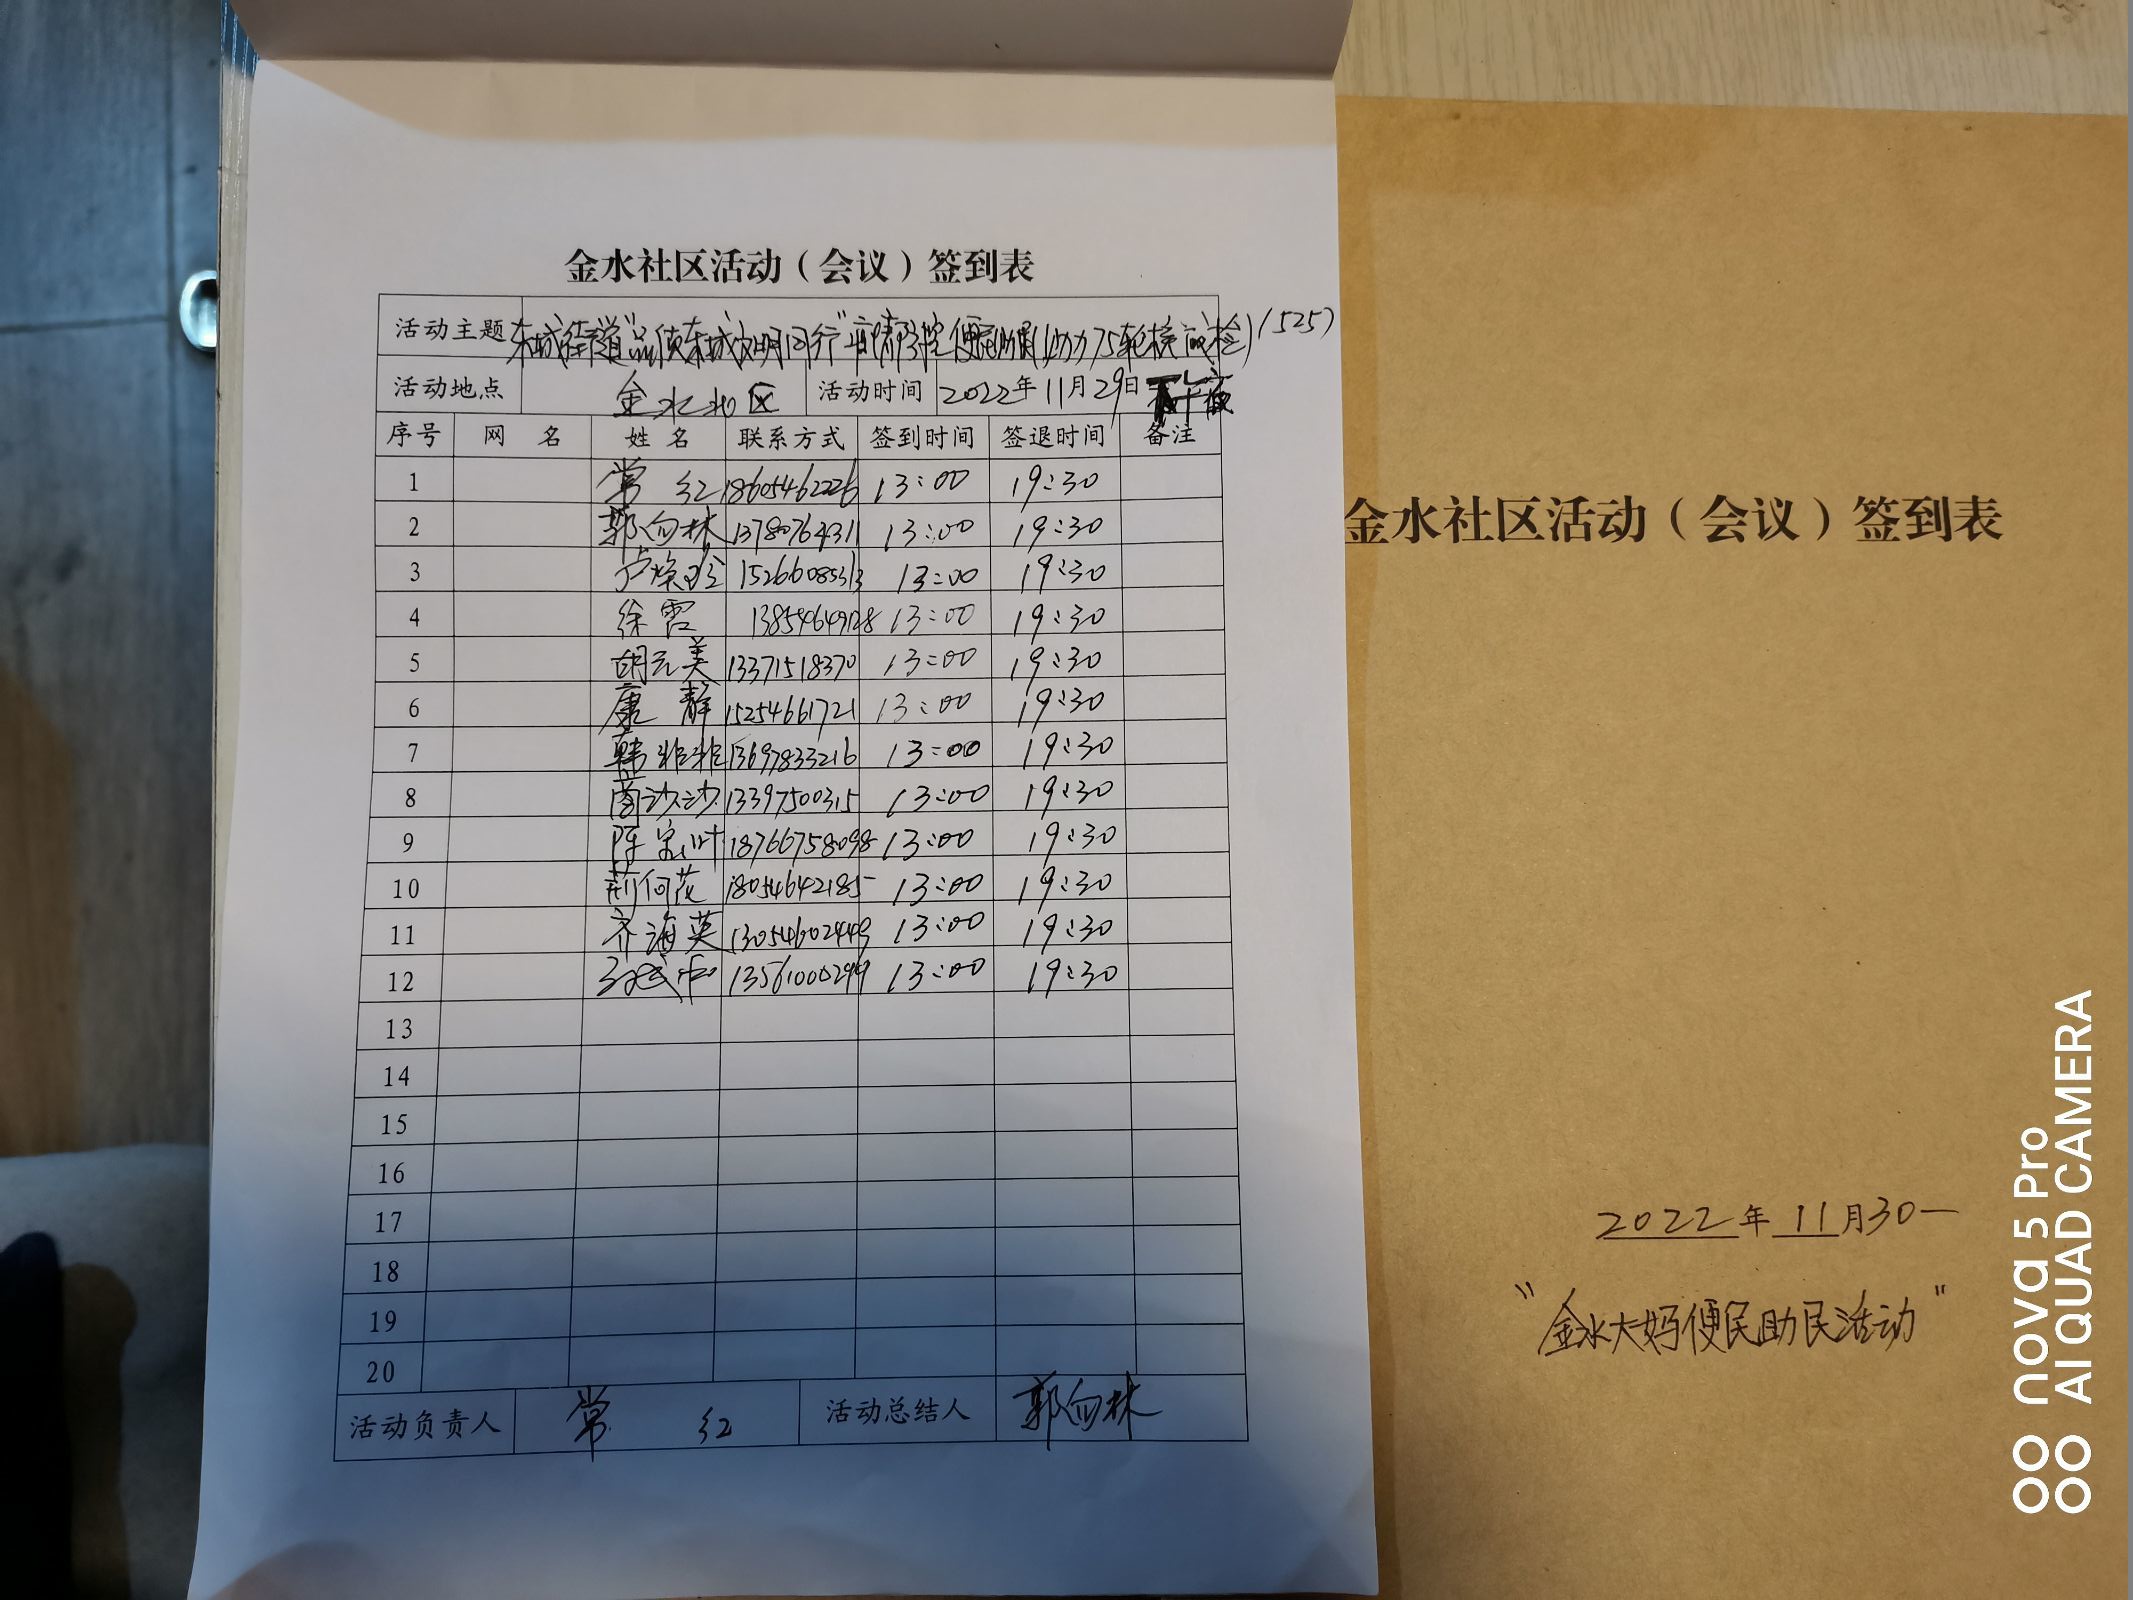 金水社区活动（会议）签到表
活动主题 东城街道"品质东城文明同行"疫情防控便民助民(协助75轮核酸检)(525)
活动地点 金水社区 活动时间 2022年11月29日 下午
序号 网 名 姓 名 联系方式 签到时间 签退时间 备注
1 常 红 18605462226 13:00 19:30
2 郭向林 13780764311 13:00 19:30
3 卢焕珍 15266085313 13:00 19:30
4 徐霞 13854649128 13:00 19:30
5 胡元美 13371518370 13:00 19:30
6 康 静 15254661721 13:00 19:30
7 韩非非 13697833216 13:00 19:30
8 苗沙沙 13397500315 13:00 19:30
9 陈宝叶 18766758098 13:00 19:30
10 荊何花 18054642185 13:00 19:30
11 齐海英 13054602449 13:00 19:30
12 13561000299 13:00 19:30
13
14
15
16
17
18
19
20
活动负责人 常 红 活动总结人 郭向林
金水社区活动（会议）签到表
2022年11月30一
"金水大妈便民助民活动"
nova 5 Pro
AI QUAD CAMERA